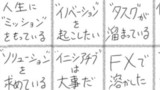 人生に
"ミッション"
をもっている
"イノベーション"
を起こしたい
"タスク"が
溜まっている
"ソリューション"を
求めている
"イニシアチブ"は
大事だ
FXで
溶かした